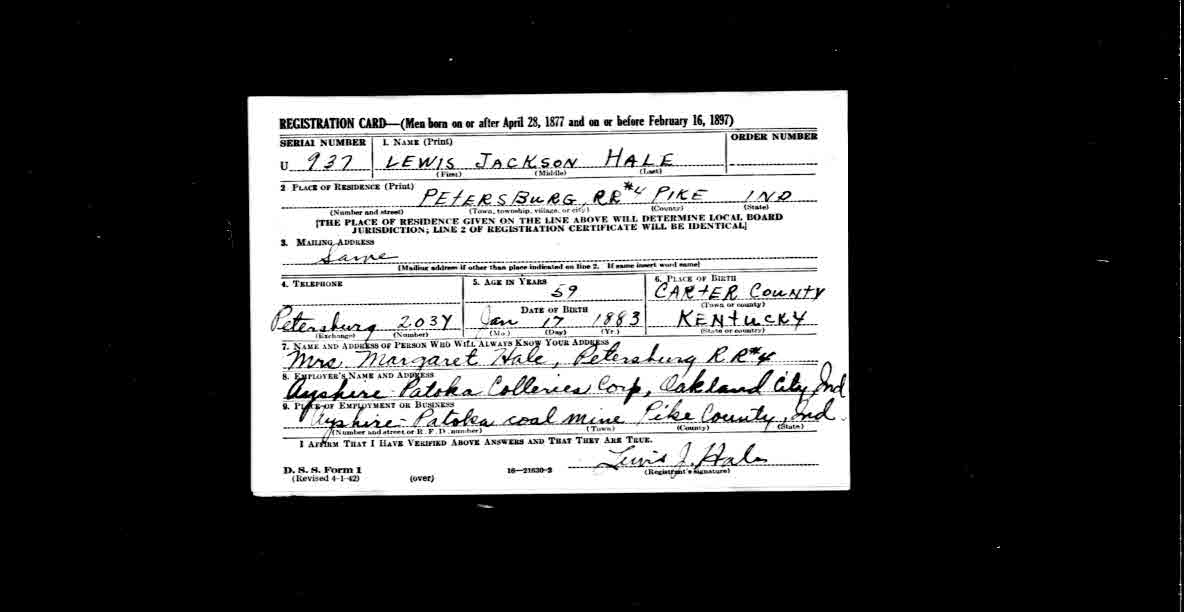 REGISTRATION CARD—(Men born on or after April 28, 1877 and on or before February 16, 1897)
SERIAL NUMBER 1. NAME (Print) ORDER NUMBER
U 937 LEWIS JACKSON HALE
(First) (Middle) (Last)
2 PLACE OF RESIDENCE (Print)
PETERSBURG, RR #4 PIKE IND
(Number and street) (Town, township, village, or city) (County) (State)
[THE PLACE OF RESIDENCE GIVEN ON THE LINE ABOVE WILL DETERMINE LOCAL BOARD
JURISDICTION; LINE 2 OF REGISTRATION CERTIFICATE WILL BE IDENTICAL]
3. MAILING ADDRESS
Same
[Mailing address if other than place indicated on line 2. If same insert word same]
4. TELEPHONE 5. AGE IN YEARS 6. PLACE OF BIRTH
59 CARTER COUNTY
(Town or county)
DATE OF BIRTH
Petersburg 2034 Jan 17 1883 KENTUCKY
(Exchange) (Number) (Mo.) (Day) (Yr.) (State or country)
7. NAME AND ADDRESS OF PERSON WHO WILL ALWAYS KNOW YOUR ADDRESS
Mrs. Margaret Hale, Petersburg R.R#4
8. EMPLOYER'S NAME AND ADDRESS
Ayshire Patoka Colleries Corp, Oakland City Ind
9. PLACE OF EMPLOYMENT OR BUSINESS
Ayshire Patoka coal mine Pike County, Ind.
(Number and street or R. F. D. number) (Town) (County) (State)
I AFFIRM THAT I HAVE VERIFIED ABOVE ANSWERS AND THAT THEY ARE TRUE.
Lewis J. Hale
D. S. S. Form 1 16—21630-2 (Registrant's signature)
(Revised 4-1-42) (over)